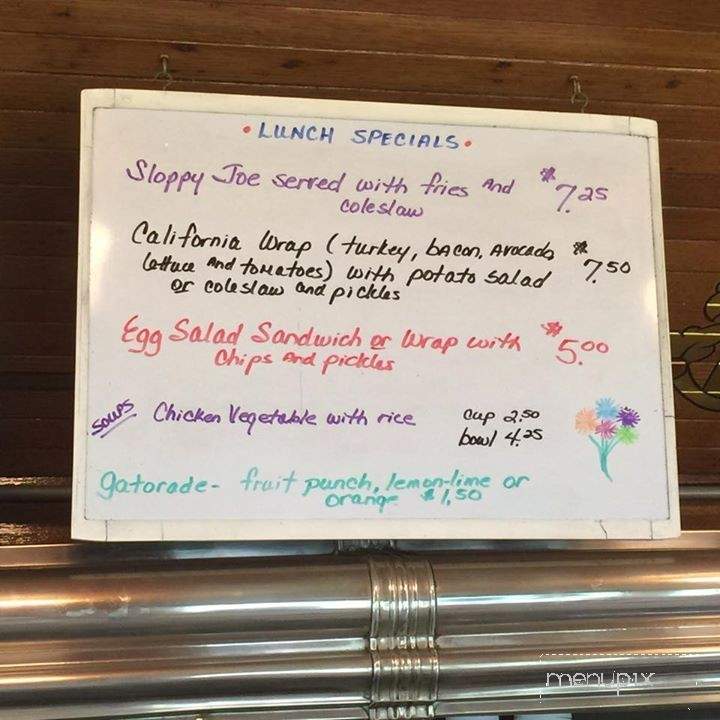 • LUNCH SPECIALS •
Sloppy Joe served with fries and $7.25
coleslaw
California Wrap (turkey, bacon, avocado, $7.50
lettuce and tomatoes) with potato salad
or coleslaw and pickles
Egg Salad Sandwich or Wrap with $5.00
chips and pickles
Soups Chicken Vegetable with rice cup 2.50
bowl 4.25
gatorade - fruit punch, lemon-lime or
orange $1.50
menupix